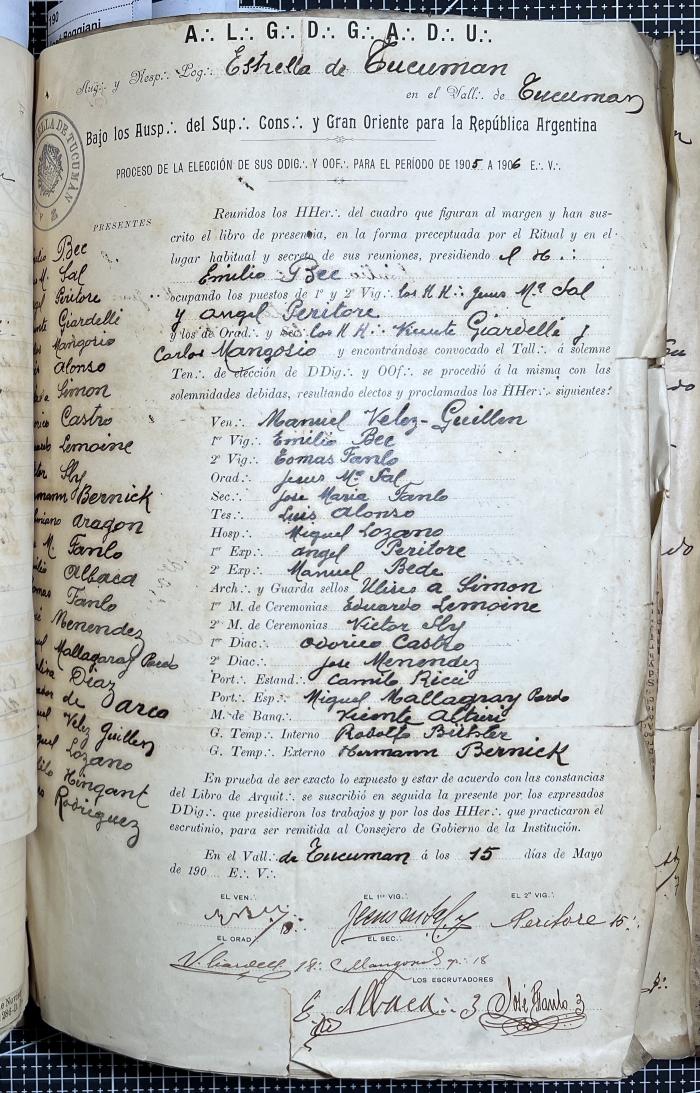 A∴ L∴ G∴ D∴ G∴ A∴ D∴ U∴
Aug∴ y Resp∴ Log∴ Estrella de Tucuman
en el Vall∴ de Tucuman
Bajo los Ausp∴ del Sup∴ Cons∴ y Gran Oriente para la República Argentina
PROCESO DE LA ELECCIÓN DE SUS DDIG∴ Y OOF∴ PARA EL PERÍODO DE 1905 A 1906 E∴ V∴
ELLA DE TUCUMAN
PRESENTES
Bee
Sal
Peritore
Giardelli
Mangosio
Alonso
Simon
Castro
Lemoine
Sly
Bernick
Aragon
M. Fanlo
Albaca
Fanlo
Menendez
Mallagaray Pardo
Diaz
de Darco
Velez Guillen
Lozano
Hingant
Rodriguez
Reunidos los HHer∴ del cuadro que figuran al margen y han sus-
crito el libro de presencia, en la forma preceptuada por el Ritual y en el
lugar habitual y secreto de sus reuniones, presidiendo el H∴
Emilio Bee
ocupando los puestos de 1º y 2º Vig∴ los H H∴ Jesus Mª Sal
y Angel Peritore
y los de Orad∴ y Sec∴ los H H∴ Vicente Giardelli y
Carlos Mangosio y encontrándose convocado el Tall∴ á solemne
Ten∴ de elección de DDig∴ y OOf∴ se procedió á la misma con las
solemnidades debidas, resultando electos y proclamados los HHer∴ siguientes:
Ven∴ Manuel Velez-Guillen
1er Vig∴ Emilio Bee
2º Vig∴ Tomas Fanlo
Orad∴ Jesus Mª Sal
Sec∴ Jose Maria Fanlo
Tes∴ Luis Alonso
Hosp∴ Miguel Lozano
1er Exp∴ Angel Peritore
2º Exp∴ Manuel Bede
Arch∴ y Guarda sellos Ulises A Simon
1er M. de Ceremonias Eduardo Lemoine
2º M. de Ceremonias Victor Sly
1er Diac∴ Odorico Castro
2º Diac∴ Jose Menendez
Port∴ Estand∴ Camilo Ricci
Port∴ Esp∴ Miguel Mallagray Pardo
M. de Banq∴ Vicente Altieri
G. Temp∴ Interno Rodolfo Bühler
G. Temp∴ Externo Hermann Bernick
En prueba de ser exacto lo expuesto y estar de acuerdo con las constancias
del Libro de Arquit∴ se suscribió en seguida la presente por los expresados
DDig∴ que presidieron los trabajos y por los dos HHer∴ que practicaron el
escrutinio, para ser remitida al Consejero de Gobierno de la Institución.
En el Vall∴ de Tucuman á los 15 días de Mayo
de 190 E∴ V∴
EL VEN∴ EL 1er VIG∴ EL 2º VIG∴
Peritore 15∴
EL ORAD∴ EL SEC∴
V. Giardelli 18∴ C Mangosio 18
LOS ESCRUTADORES
E. Albaca∴ 3 José Fanlo 3